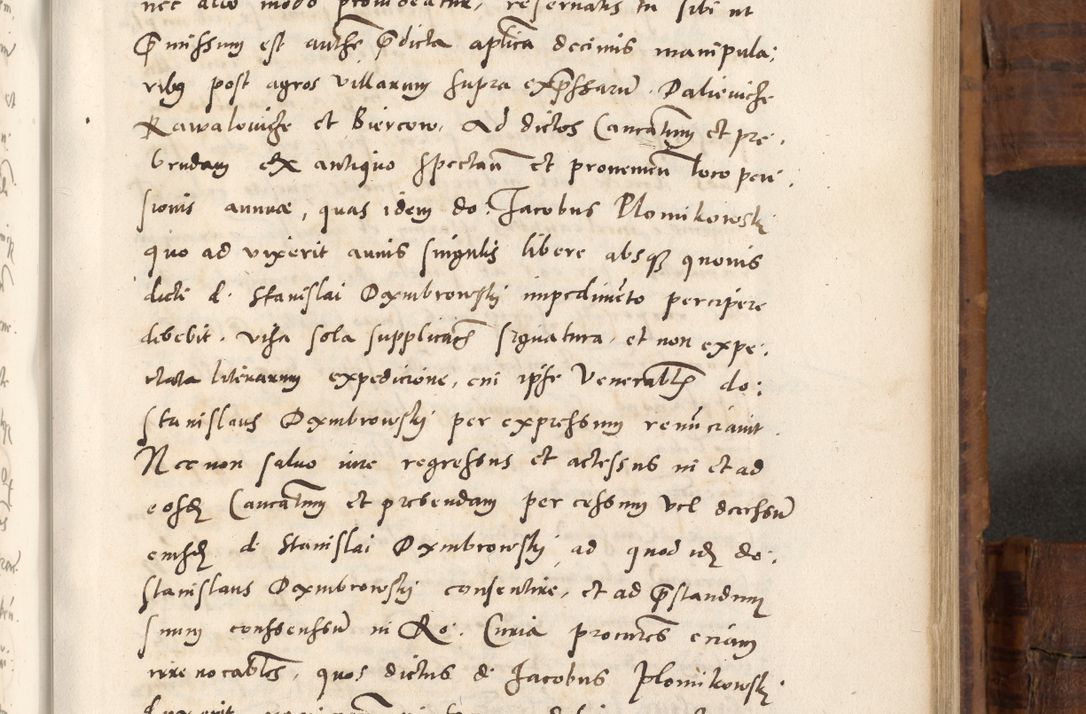 nec alio modo provideatur, reservatis tn sibi ut
p̃missum est auth̃e p̃dicta aplica decimis manipula:
ribus post agros villarum supra exp̃ssarũ. Dalieviche
Rawalowiche et Biercow. Ad dictos Canc̃atum et pre,
bendam ex antiquo spectañ et provenieñ loco pen,
sionis annuæ, quas idem do: Jacobus Plomikowskj
quo ad vixerit annis singulis libere absq quovis
dicti d. Stanislai Dxmbrowskj impedimẽto percipere
debebit. visa sola supplicãois signatura. et non expe:
ctata literarum expedicione, cui ipse Venerablis do:
Stanislaus Dxmbrowskj per expressum renũciavit
Nec non salvo iure regressus et accessus in et ad
eosd Canc̃atum et prebendam per cessum vel decessũ
eiusd d. Stanislai Dxmbrowskj ad quod id do:
Stanislaus Dxmbrowskj consentire, et ad p̃standum
suum consensũ in Ro: Curia procures eciam
irrevocables, quos dictus d: Jacobus Plomikowskj